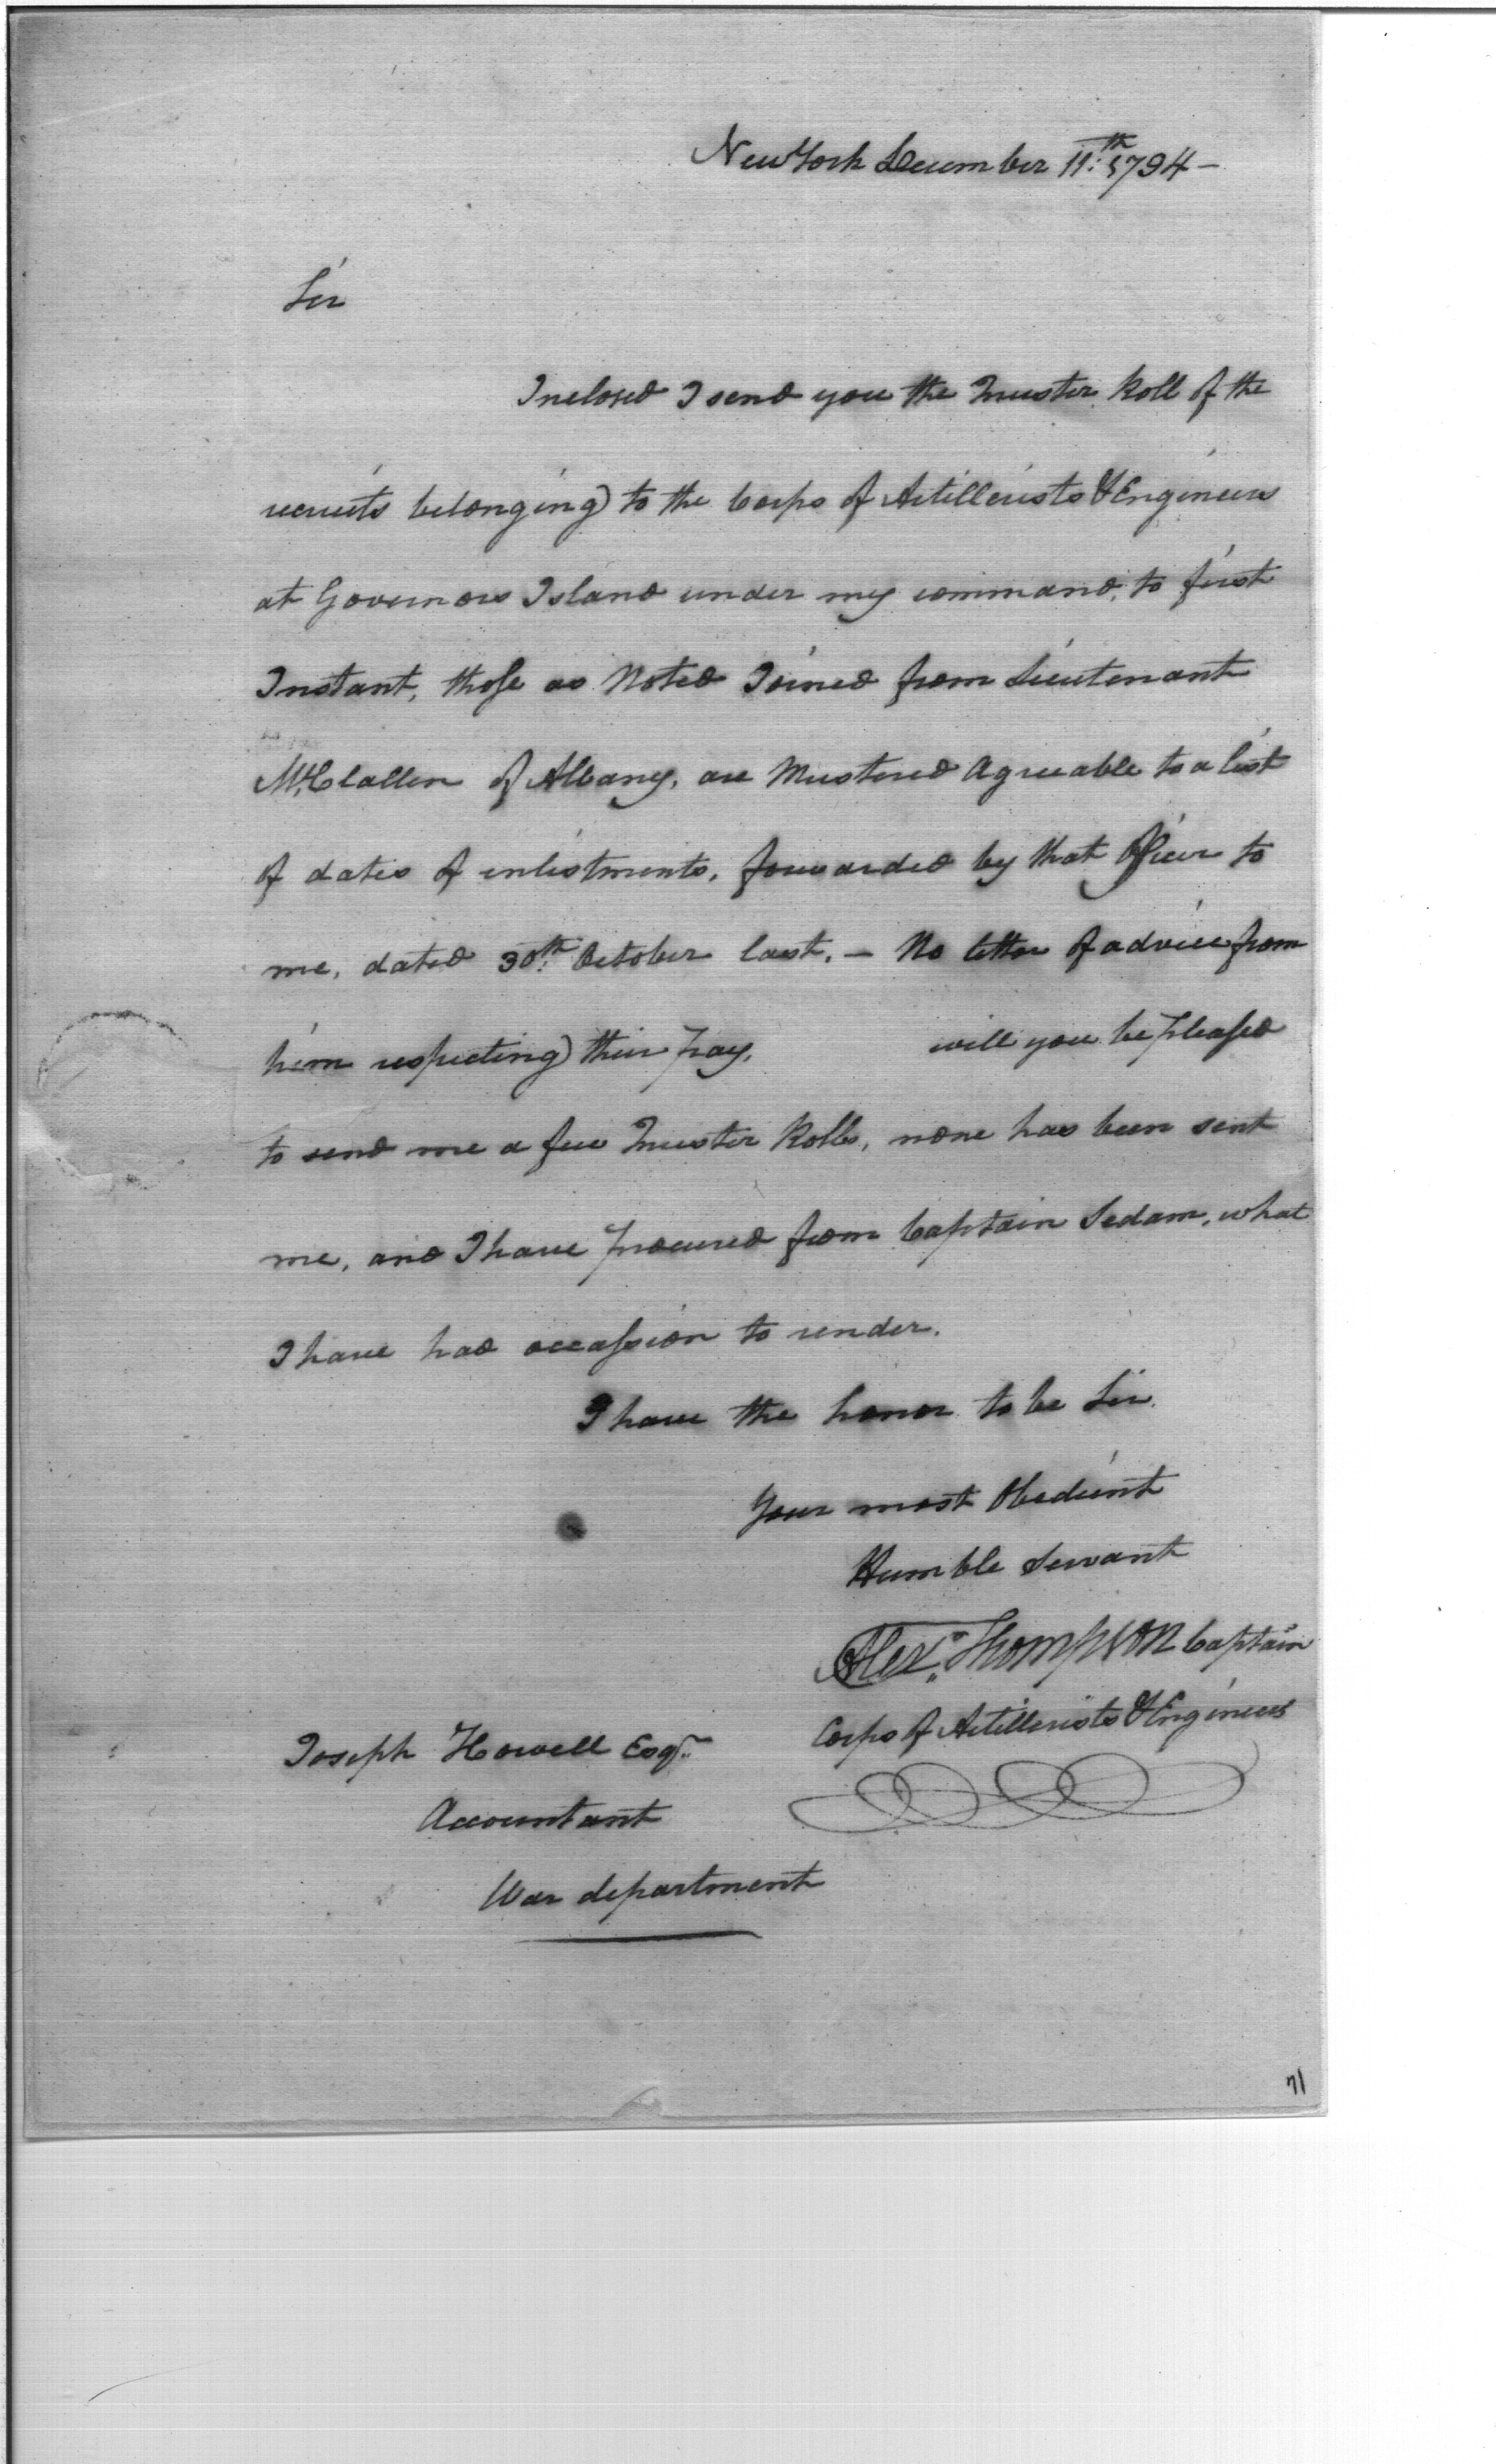 New York December 11th 1794 -
Sir
Inclosed I send you the Muster Roll of the
recruits belonging to the Corps of Artillerists & Engineers
at Governors Island under my command, to first
Instant, those as Noted Joined from Lieutenant
McClallen of Albany, are Mustered Agreeable to a list
of dates of enlistments, forwarded by that Officer to
me, dated 30th October last, - No letter of advice from
him respecting their pay, will you be pleased
to send me a few Muster Rolls, none has been sent
me, and I have procured from Captain Sedam, what
I have had occassion to render.
I have the honor to be Sir
Your most Obedient
Humble Servant
Alexr. Thompson Captain
Corps of Artillerists & Engineers
Joseph Howell Esqr.
Accountant
War department
71